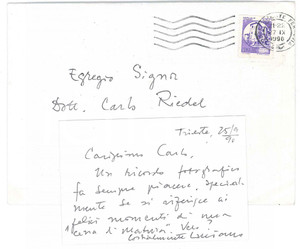 Egregio Signor
Dott. Carlo Riedel
Trieste, 25/9
Carissimo Carlo,
Un ricordo fotografico
fa sempre piacere, special
mente se si riferisce ai
felici momenti di una
cena
cordialmente